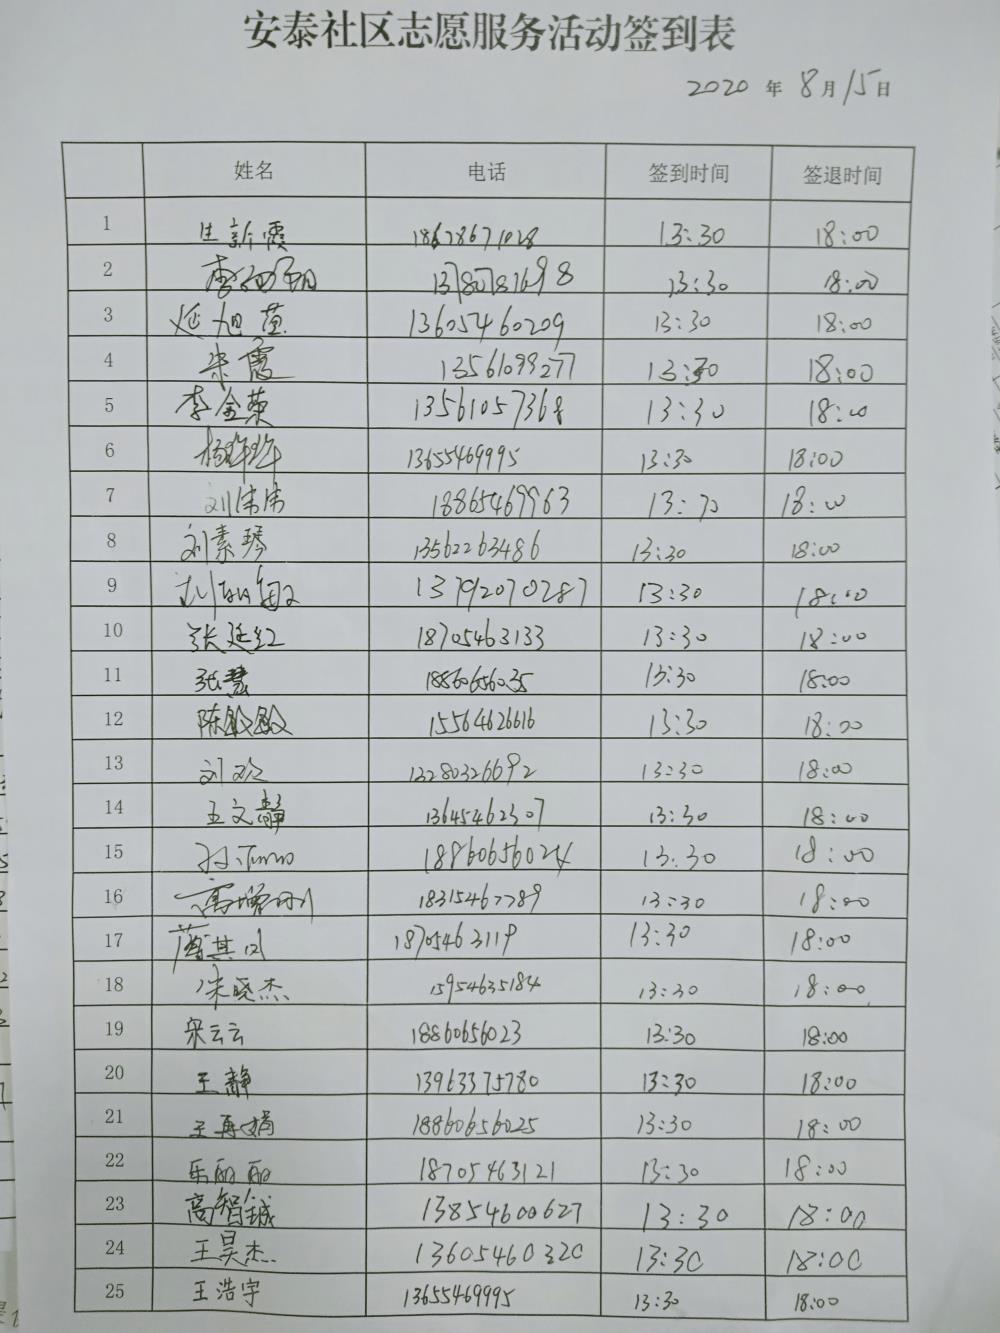 安泰社区志愿服务活动签到表
2020 年 8月15日
姓名 电话 签到时间 签退时间
1 生新霞 18678671028 13:30 18:00
2 李 13780781698 13:30 18:00
3 延旭 13605460209 13:30 18:00
4 宋霞 13561099277 13:30 18:00
5 李金荣 13561057368 13:30 18:00
6 杨 13655469995 13:30 18:00
7 刘伟伟 18865469963 13:30 18:00
8 刘素琴 13562263486 13:30 18:00
9 13792070287 13:30 18:00
10 张廷红 18705463133 13:30 18:00
11 张慧 18860656035 13:30 18:00
12 陈敏敏 15564626616 13:30 18:00
13 刘欢 13280326692 13:30 18:00
14 王文静 13645462307 13:30 18:00
15 孙 18860656024 13:30 18:00
16 高增刚 18315467789 13:30 18:00
17 其 18705463119 13:30 18:00
18 朱晓杰 15954635184 13:30 18:00
19 宋云云 18860656023 13:30 18:00
20 王静 13963375780 13:30 18:00
21 王再娟 18860656025 13:30 18:00
22 乐丽丽 18705463121 13:30 18:00
23 高智铖 13854600627 13:30 18:00
24 王昊杰 13605460320 13:30 18:00
25 王浩宇 13655469995 13:30 18:00